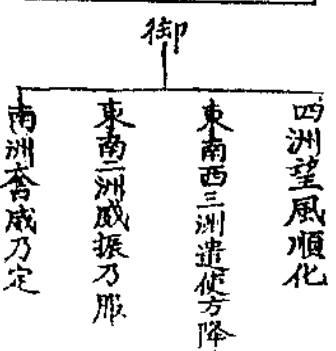 御
四洲望風順化
東南西三洲遣使方降
東南二洲威振乃服
南洲奮威乃定